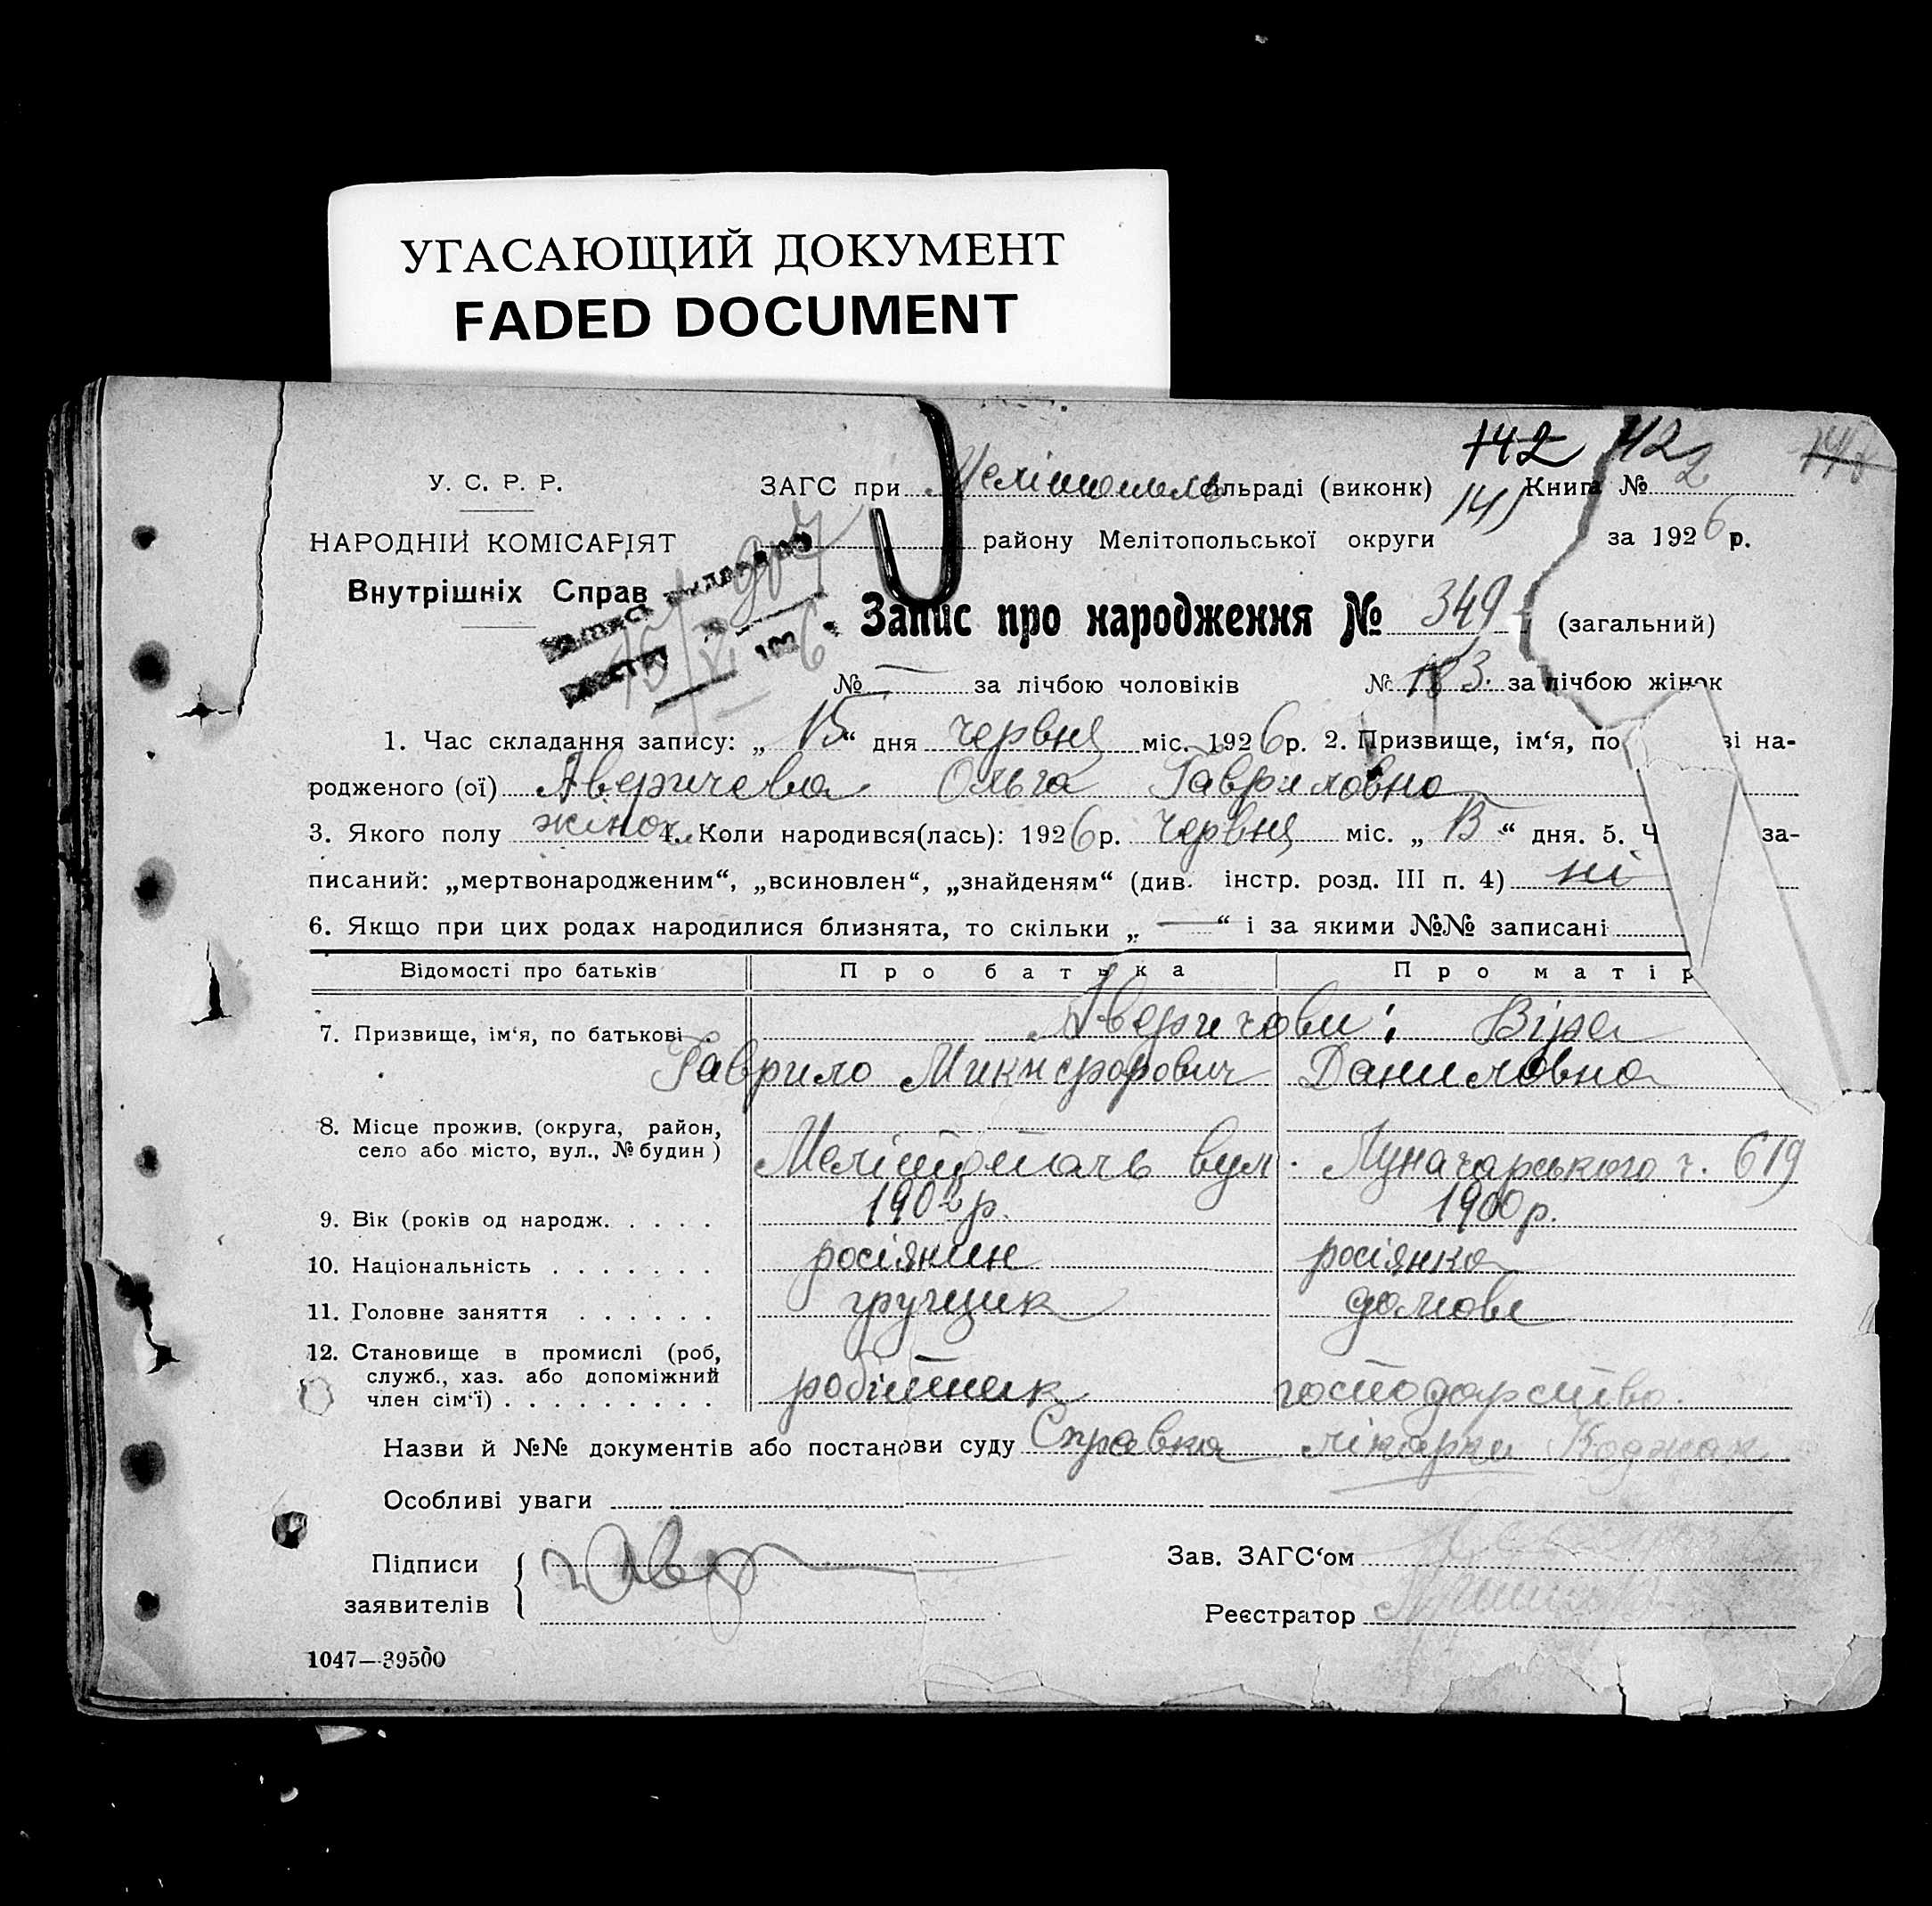 УГАСАЮЩИЙ ДОКУМЕНТ
FADED DOCUMENT
142 142
У. С. Р. Р.
ЗАГС при Мелітополь ільраді (виконк) 141 Книга № 2
НАРОДНІЙ КОМІСАРІЯТ
району Мелітопольської округи за 1926 р.
Внутрішніх Справ
907
15/VI 1926
Запис про народження № 349 (загальний)
№ — за лічбою чоловіків № 183. за лічбою жінок
1. Час складання запису: „ 15 “ дня червня міс. 1926 р. 2. Призвище, ім‘я, по ві на-
родженого (ої) Аверичева Ольга Гавриловна
3. Якого полу жіноч. 4. Коли народився(лась): 1926 р. червня міс. „ “ дня. 5. Ч за-
писаний: „мертвонародженим“, „всиновлен“, „знайденям“ (див. інстр. розд. III п. 4) ні
6. Якщо при цих родах народилися близнята, то скільки „ — “ і за якими №№ записані
Відомості про батьків Про батька Про матір
7. Призвище, ім‘я, по батькові Аверичови: Віра
Гаврило Микифорович Даниловна
8. Місце прожив. (округа, район,
село або місто, вул., № будин) Мелітополь вул. Луначарського ч. 619
9. Вік (років од народж. 1902 р. 1900 р.
10. Національність росіянин росіянка
11. Головне заняття грущик домове
12. Становище в промислі (роб,
служб., хаз. або допоміжний
член сім‘ї) робітник господарство.
Назви й №№ документів або постанови суду Справка лікарки Коджак
Особливі уваги
Підписи
заявителів
Зав. ЗАГС‘ом
Реєстратор
1047—39500